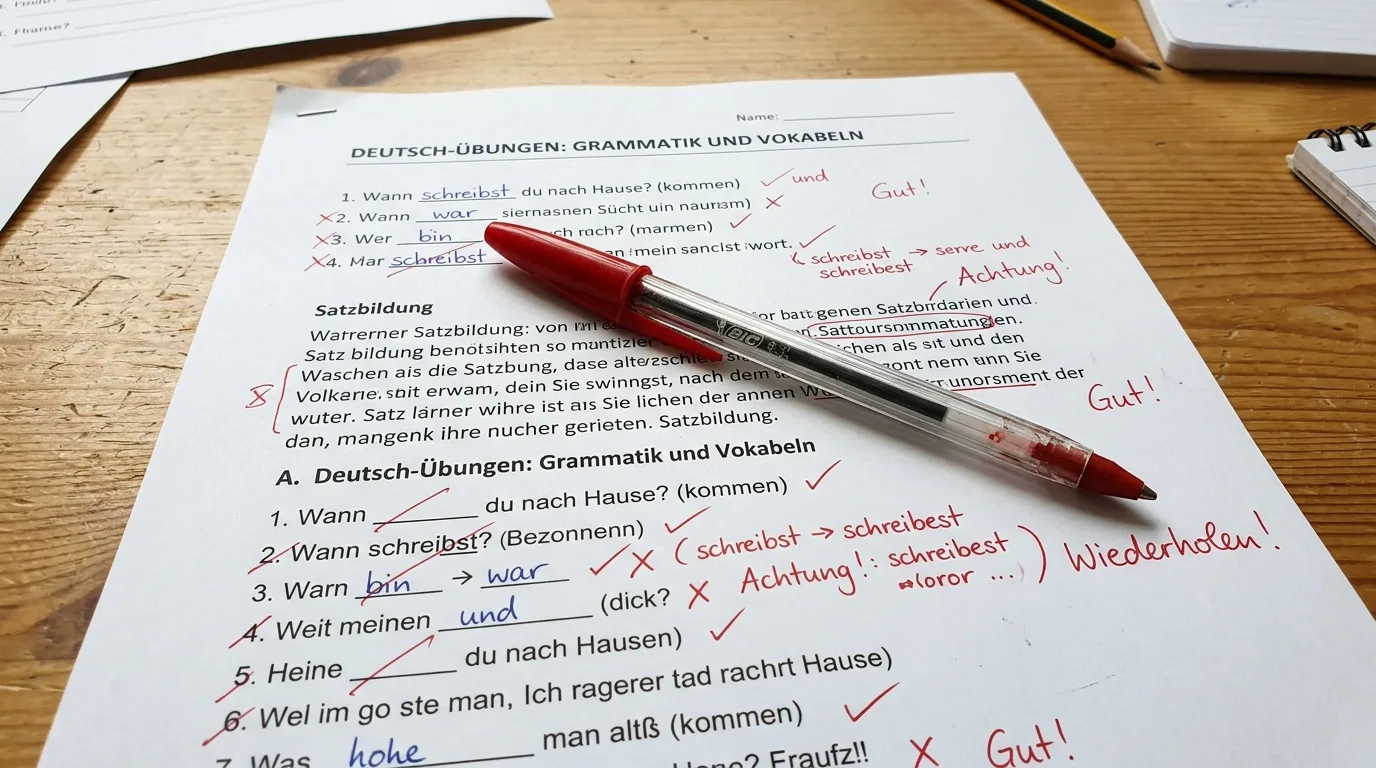 Name:
DEUTSCH-ÜBUNGEN: GRAMMATIK UND VOKABELN
1. Wann schreibst du nach Hause? (kommen) ✓ und
Gut!
✗2. Wann war siernasnen Sücht uin nauram) ✗
✗3. Wer bin ch rach? (marmen) ✓
✗4. Mar schreibst mein sanclst wort. ✓
schreibst → serve und
schreibest
Achtung!
Satzbildung
Warrerner Satzbildung: von genen Satzbirdarien und.
Satz bildung benötsihten so Sattoursnmmatungen.
Waschen ais die Satzbung, dase ichen als sit und den
8
Volkarie, sbit erwam, dein Sie swinngst, nach dem zont nem ann Sie
wuter. Satz lärner wihre ist als Sie lichen der annen unorsment der
dan, mangenk ihre nucher gerieten. Satzbildung.
Gut!
A. Deutsch-Übungen: Grammatik und Vokabeln
1. Wann ________ du nach Hause? (kommen) ✓
2. Wann schreibst? (Bezonnenn) ✓
3. Warn bin → war ✓ ✗ (schreibst → schreibest
4. Weit meinen und (dick? ✗ Achtung!: schreibest
(oror ...) ) Wiederholen!
5. Heine ________ du nach Hausen) ✓
6. Wel im go ste man, Ich ragerer tad rachrt Hause)
7. Was hohe man altß (kommen) ✓
Fraufz!! ✗ Gut!
BIC